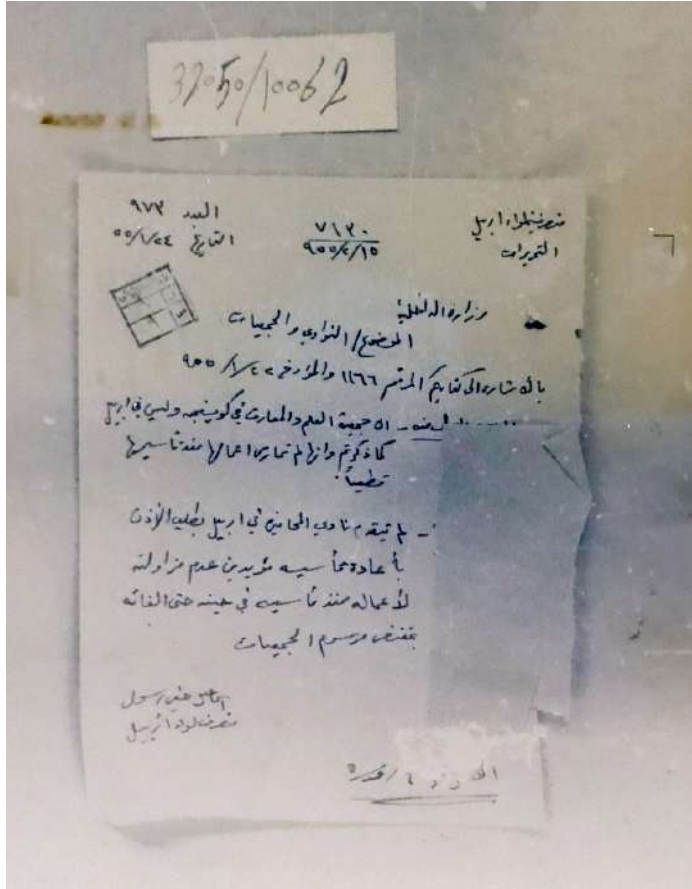 32050/10062
متصرفية لواء اربيل
التحريرات
٧١٣٠
٩٥٥/٢/١٥
العدد ٩٧٣
التاريخ ٥٥/١/٢٤
وزارة الداخلية
الموضوع/ النوادي والجمعيات
بالاشارة الى كتابكم المرقم ١١٦٦ والمؤرخ ٩٥٥/١/٢٢
ان جمعية العلم والمعارف في كويسنجه وليس في اربيل
كما ذكرتم وانها لم تمارس اعمالها منذ تأسيسها
قطعياً
- لم يتقدم نادي المحامين في اربيل بطلب الأذن
بأعادة تأسيسه مؤيدين عدم مزاولته
لأعماله منذ تأسيسه في حينه حتى الغائه
بمقتضى مرسوم الجمعيات
اسماعيل حقي رسول
متصرف لواء أربيل